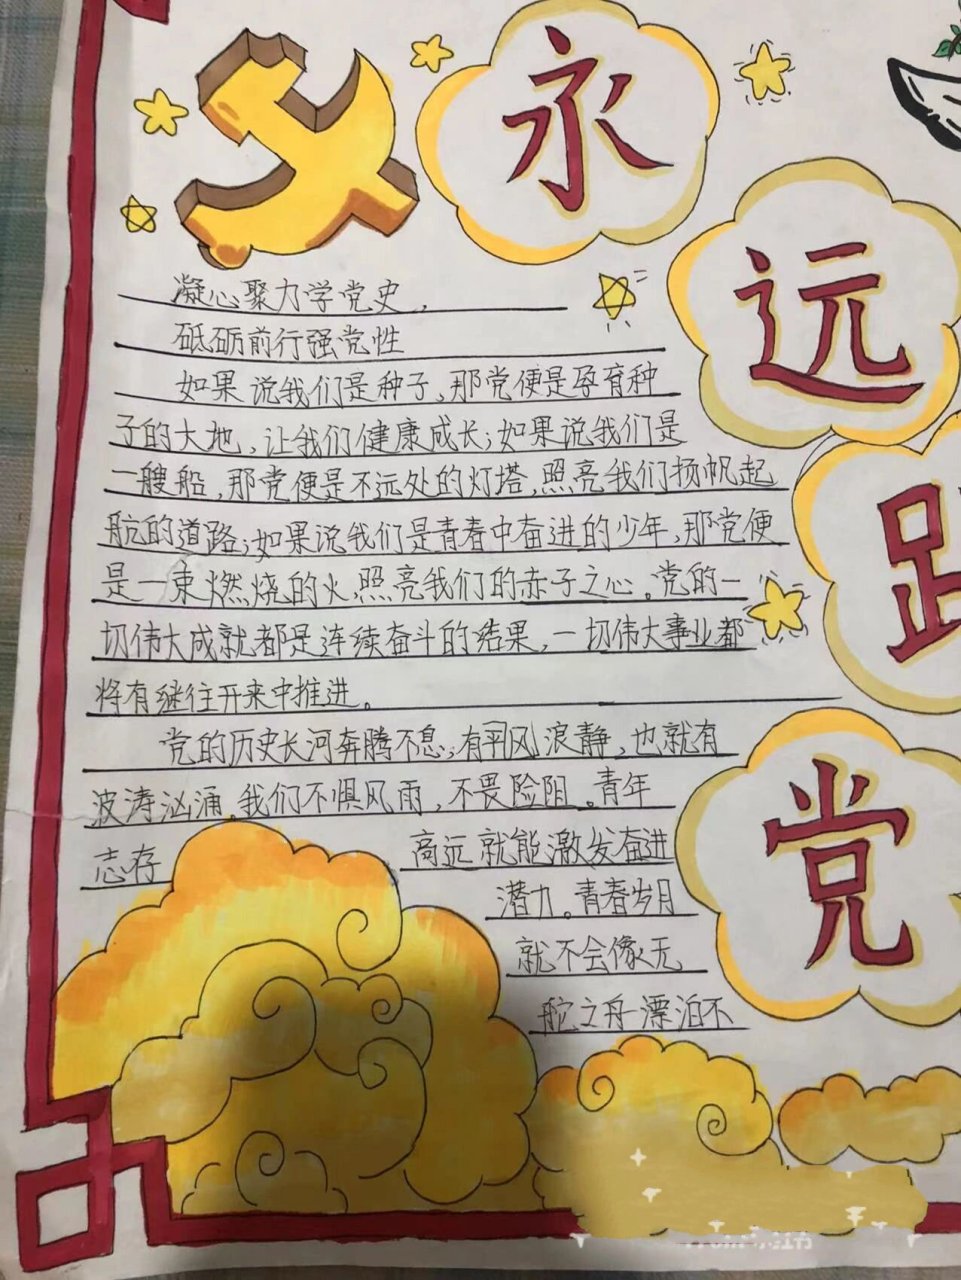 永
远
跟
党
凝心聚力学党史,
砥砺前行强党性
如果说我们是种子,那党便是孕育种
子的大地,让我们健康成长;如果说我们是
一艘船,那党便是不远处的灯塔,照亮我们扬帆起
航的道路;如果说我们是青春中奋进的少年,那党便
是一束燃烧的火,照亮我们的赤子之心。党的一
切伟大成就都是连续奋斗的结果,一切伟大事业都
将有继往开来中推进。
党的历史长河奔腾不息;有平风浪静,也就有
波涛汹涌。我们不惧风雨,不畏险阻。青年
志存 高远就能激发奋进
潜力。青春岁月
就不会像无
舵之舟漂泊不